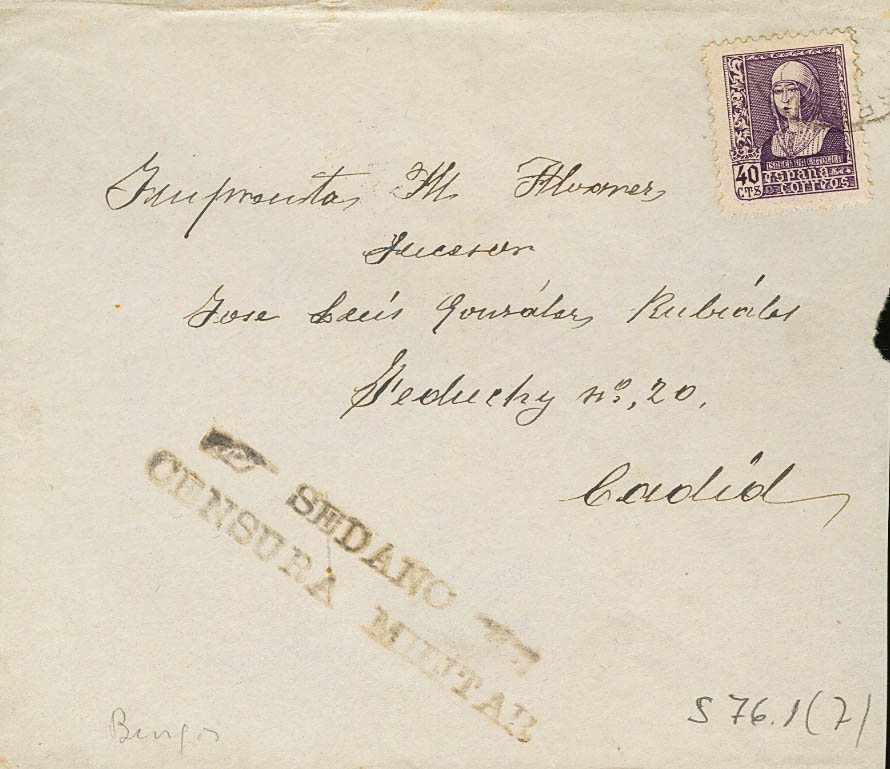 ISABEL LA CATOLICA
40 CTS
España
correos
Imprenta M. Alvarez
Sucesor
Jose Luís Gonzáles Rubiáles
Feduchy nº, 20.
Cadid
SEDANO
CENSURA MILITAR
Burgos
S 76.1(7)